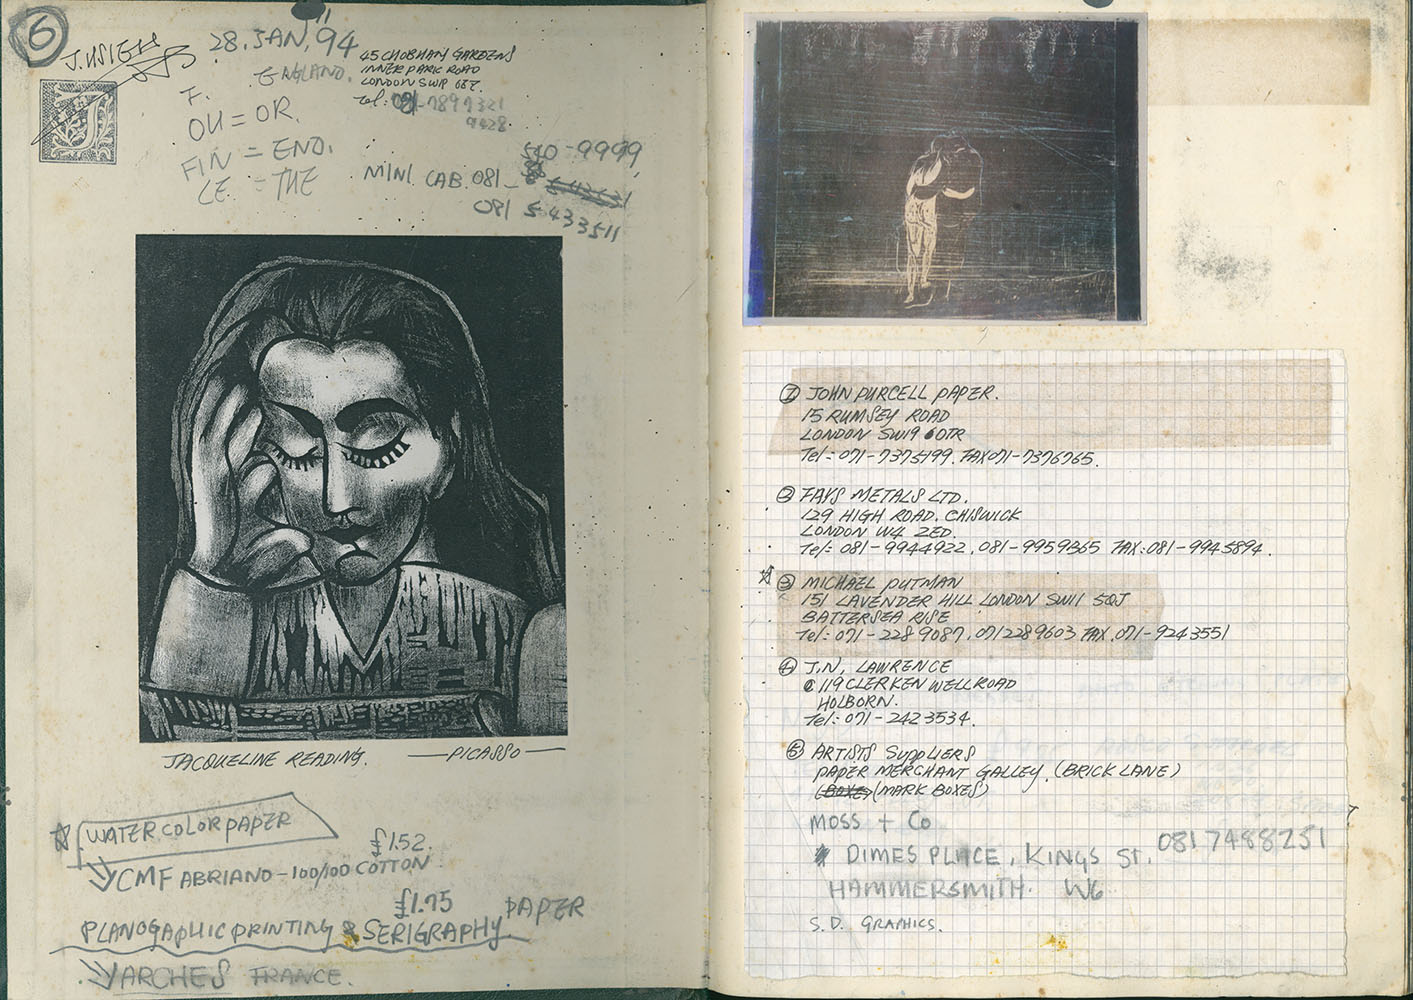 6
J. HSIEH
28. JAN, '94
ENGLAND.
45 CHOBHAM GARDENS
INNER PARK ROAD
LONDON
Tel: 081-7897321
9428.
F.
OU = OR.
FIN = END.
LE = THE
MINI CAB. 081-
540-9999,
081 5433511
JACQUELINE READING. —PICASSO—
WATER COLOR PAPER
£1.52.
CMF ABRIANO - 100/100 COTTON
£1.75
PLANOGAPHIC PRINTING & SERIGRAPHY PAPER
ARCHES FRANCE.
① JOHN PURCELL PAPER.
15 RUMSEY ROAD
LONDON SW19 6OTR
Tel: 071-7375199. FAX 071-7376765.
② FAYS METALS LTD.
129 HIGH ROAD. CHISWICK
LONDON W4 2ED.
Tel: 081-9944922, 081-9959365 FAX: 081-9945894.
③ MICHAEL PUTMAN
151 LAVENDER HILL LONDON SW11 5QJ
BATTERSEA RISE
Tel: 071-2289087, 071 2289603 FAX, 071-9243551
④ J.N. LAWRENCE
119 CLERKEN WELL ROAD
HOLBORN.
Tel: 071-2423534.
⑤ ARTISTS SUPPLIERS
PAPER MERCHANT GALLEY. (BRICK LANE)
(MARK BOXES)
MOSS + Co
DIMES PLACE, KINGS ST. 081 7488251
HAMMERSMITH. W6
S.D. GRAPHICS.